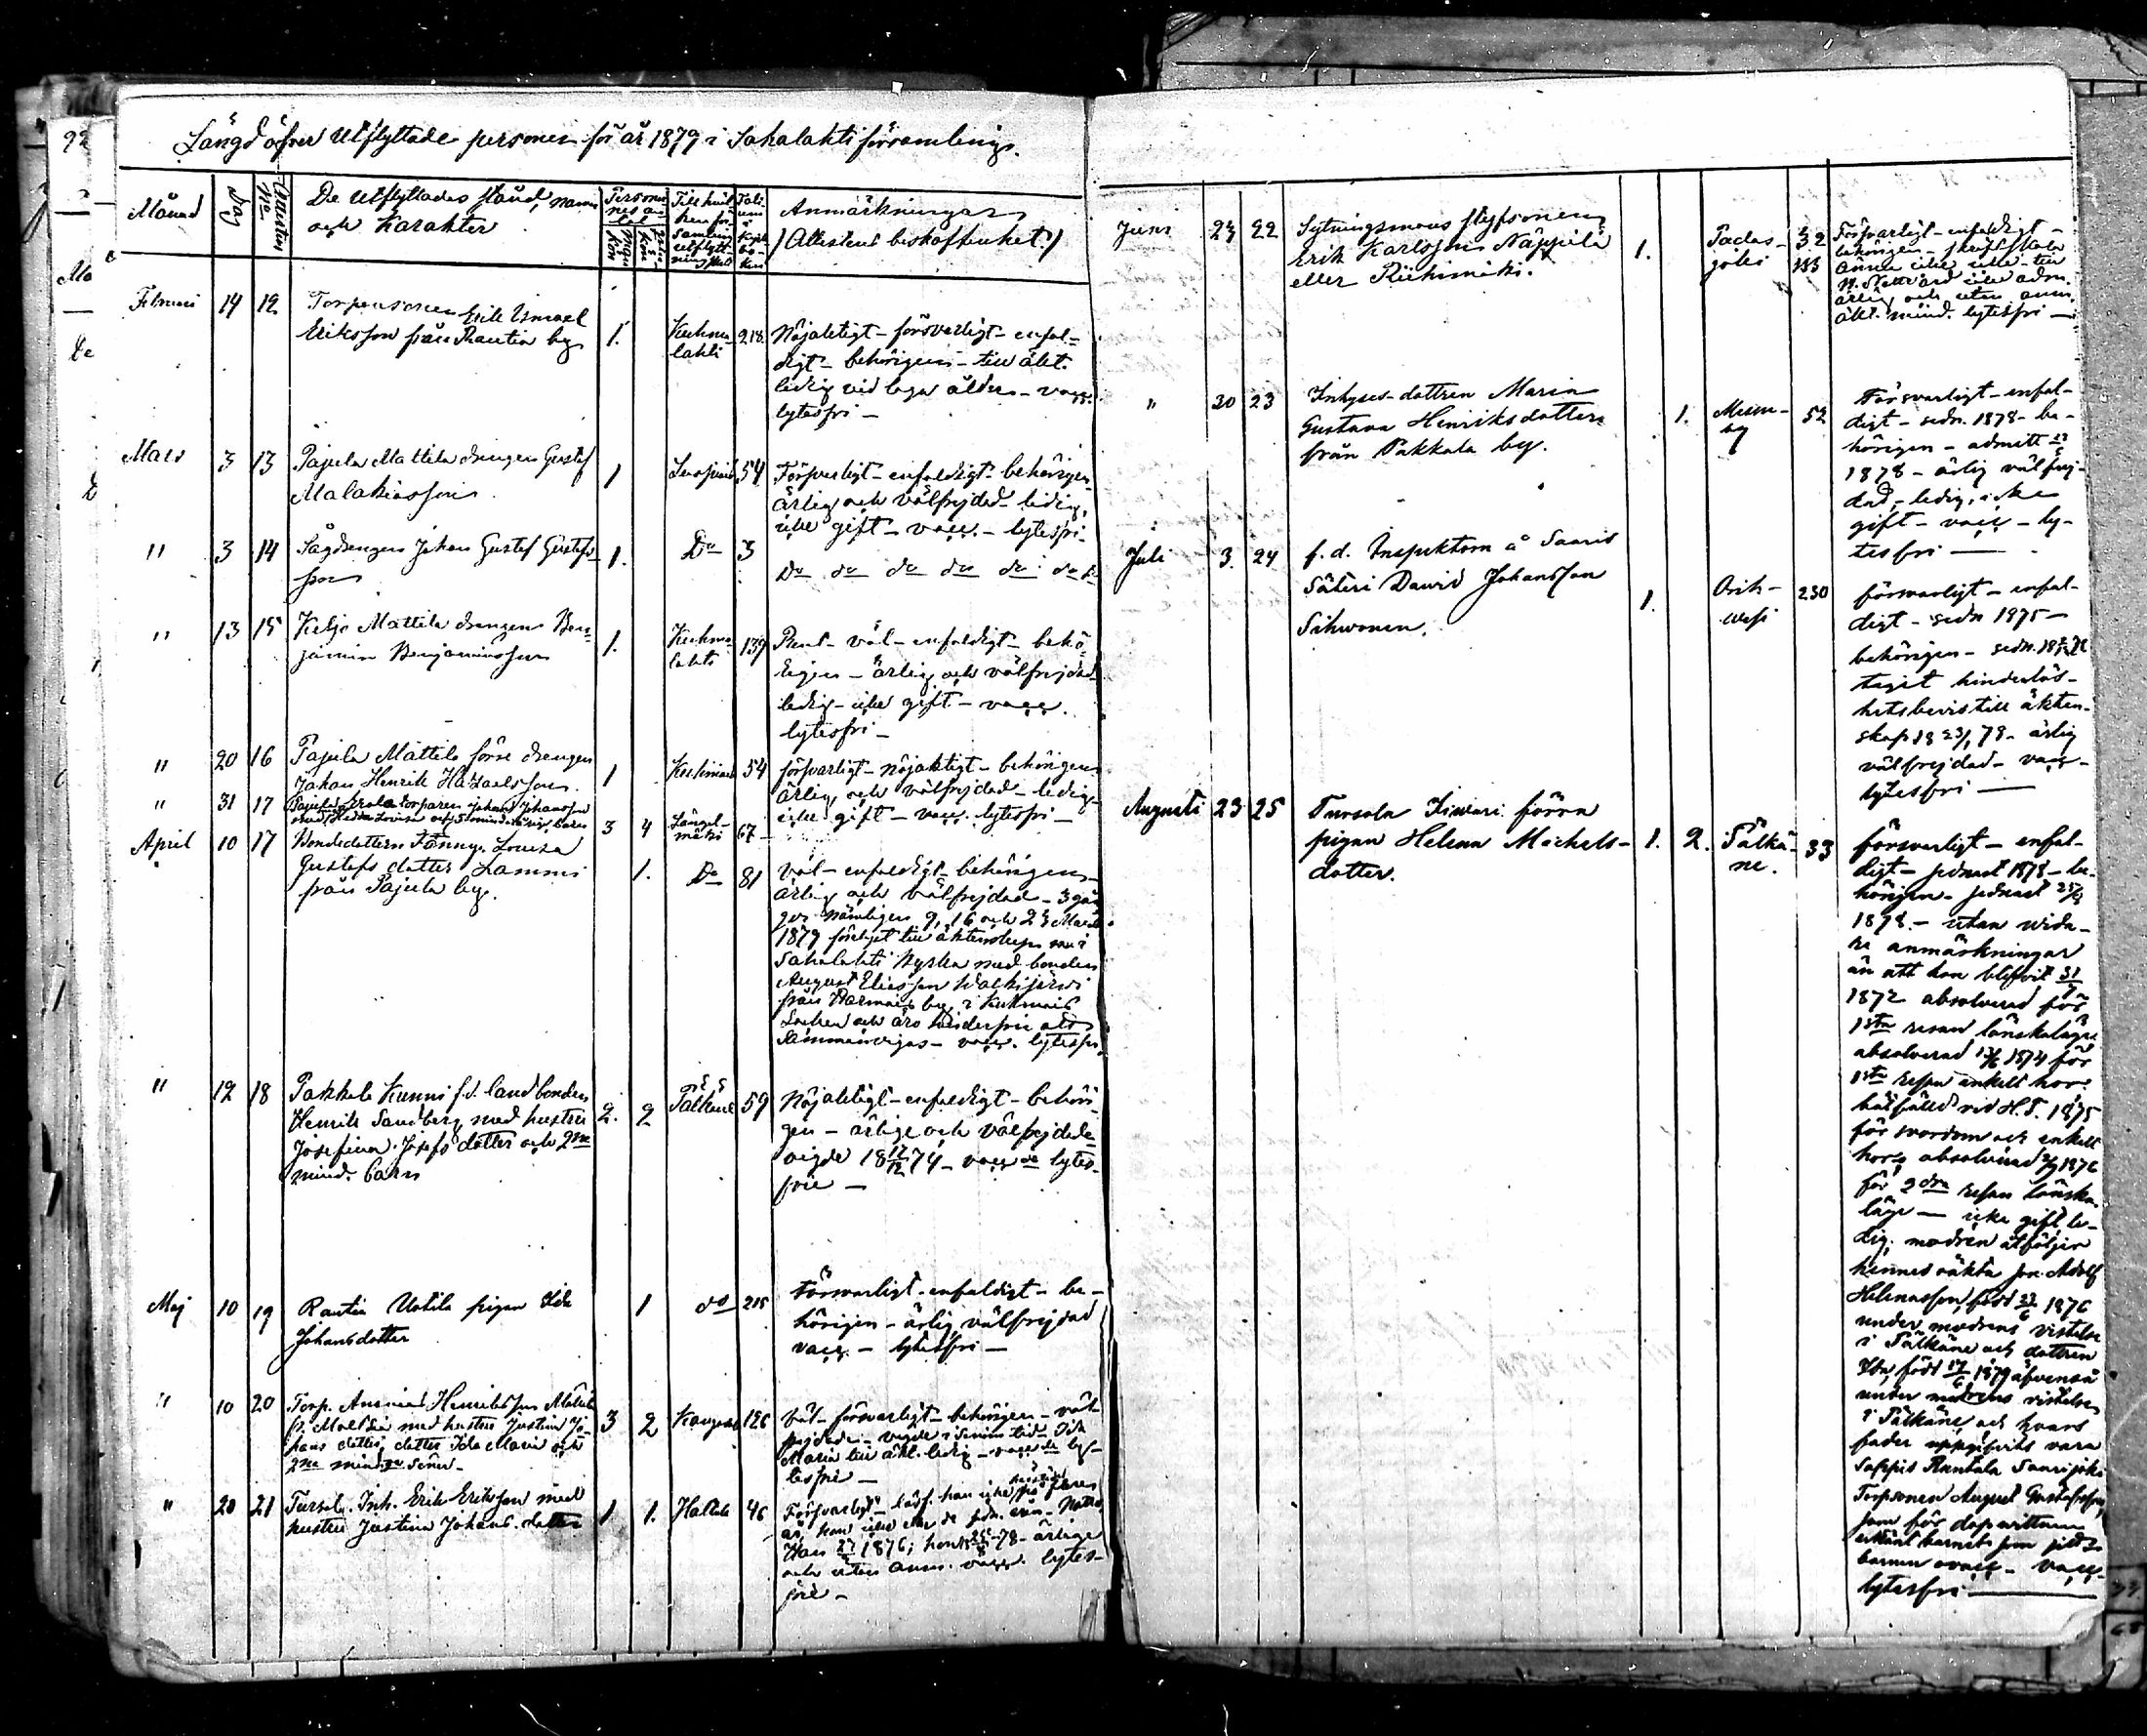 Längd öfver Utflyttade personer för år 1879 i Sahalahti församling.
Månad
Dag
Attestens
N:o
De utflyttades stånd, namn
och Karakter
Personer-
nes an-
tal
Man
kön
Qvin-
kön
Till hvil-
ken för-
samling
utflytt-
ning sked
Anmärkningar
(Attestens beskaffenhet.)
Februari 14 12 Torparesonen Erik Ismael
Eriksson från Rautia by
1. Kuhma-
lahti 218.
Nöjaktigt - försvarligt - enfal-
digt - behörigen - till äkt.
ledig vid laga ålder - vacc.
lytesfri -
Mars 3 13 Pajula Mattila drengen Gustaf
Malakiasson
1 54
Försvarligt - enfaldigt - behörigen
ärlig och välfrejdad - ledig,
icke gift - vacc. - lytesfri -
" 3 14 Sågdrengen Johan Gustaf Gustafs-
son
1. Do 3
Do do do do do do
" 13 15 Mattila drengen Ben-
jamin Benjaminsson
1. Kuhma-
lahti 139
Rent - väl - enfaldigt - behö-
rigen - ärlig och välfrejdad
ledig - icke gift - vacc.
lytesfri -
" 20 16 Pajula Mattila förre drengen
Johan Henrik
1 54
försvarligt - nöjaktigt - behörigen
ärlig och välfrejdad - ledig -
icke gift - vacc. lytesfri -
" 31 17 Pajula torparen Johan Johansson
med Lovisa och 5 minderåriga barn
3 4 Längel-
mäki 67 -
April 10 17 Bondedottren Fanny Lovisa
Gustafs dotter Lammi
från Pajula by.
1. Do 81
Väl - enfaldigt - behörigen -
ärlig och välfrejdad - 3 gån-
ger nämligen 9, 16 och 23 Mars
1879 till äktenskap i
Sahalahti Kyrka med bonden
August Eliasson
från by i Kuhmois
Socken och äro hinderfri att
sammanvigas - vacc. lytesfri
" 12 18 Pakkala Kunni f.d. landbonden
Henrik Sandberg med hustru
Josefina Josefs dotter och 2ne
mind. barn
2. 2 Pälkäne 59
Nöjaktigt - enfaldigt - behöri-
gen - ärlige och välfrejdade
vigde 18 17/12 74 - vacc. de lytes-
frie -
Maj 10 19 Rautia Uotila pigan Ida
Johansdotter
1 do 215
Försvarligt - enfaldigt - be-
hörigen - ärlig välfrejdad
vacc. - lytesfri -
" 10 20 Torp. Henriksson
med hustru Justina Jo-
hans dotter, dotter Ida Maria och
2ne mind. Söner -
3 2 126
Väl - försvarligt - behörigen - väl-
frejdade - vigde i sinom tid - Ida
Maria till äkt. ledig - vacc. de ly-
tesfri -
" 20 21 Tursola Inh. Erik Eriksson med
hustru Justina Johans. dotter
1 1. 46
Försvarligt - läsf. han icke flere
år, hon icke
Han 27 1876; hon 78 - ärlige
och utan anm. vacc. lytes-
frie -
Juni 23 22 Sytningsmans styfsonen
Erik Karlsson Näppilä
eller Riihimäki.
1. Padas-
joki 32
133
Försvarligt - enfaldigt -
behörigen - skriftskola
ännu icke
icke adm.
ärlig och utan anm.
äkt. mind. lytesfri -
" 30 23 Inhyses-dottren Maria
Gustava Henriksdotter
från Pakkala by.
1. Messu-
by 52
Försvarligt - enfal-
digt - sedn. 1878 - be-
hörigen - admitt.
1878 - ärlig välfrej-
dad, - ledig, icke
gift - vacc - ly-
tesfri -
Juli 3. 24 f.d. Inspektorn å Saaris
Säteri David Johansson
Sihvonen.
1. Orih-
vesi 230
försvarligt - enfal-
digt - sedn 1875 -
behörigen - sedn.
tagit hinderlös-
hetsbevis till äkten-
skap 18 23/1 78 - ärlig
välfrejdad - vacc -
lytesfri -
Augusti 23 25 Tursola förra
pigan Helena Michels-
dotter.
1. 2. Pälkä-
ne. 33
försvarligt - enfal-
digt - sednast 1878 - be-
hörigen - sednast
1878. - utan vida-
re anmärkningar
än att hon blifvit
1872 absolverad för
1sta resan lönskaläge
absolverad 1874 för
1sta resan enkelt hor
sakfälld vid H.T. 1875
för svordom och enkelt
hor, absolverad 1876
för 2dra resan lönska-
läge - icke gift le-
dig; modren åtföljer
hennes oäkta son Adolf
Helenasson, född 1876
under modrens vistelse
i Pälkäne och dottren
Ida, född 1879 äfvenså
under modrens vistelse
i Pälkäne, och hvars
fader uppgifvits vara
Rantala
Torpsonen August Gustafsson,
som för dopvittnen
erkänt barnet som sitt
barnen ovacc - vacc -
lytesfri -